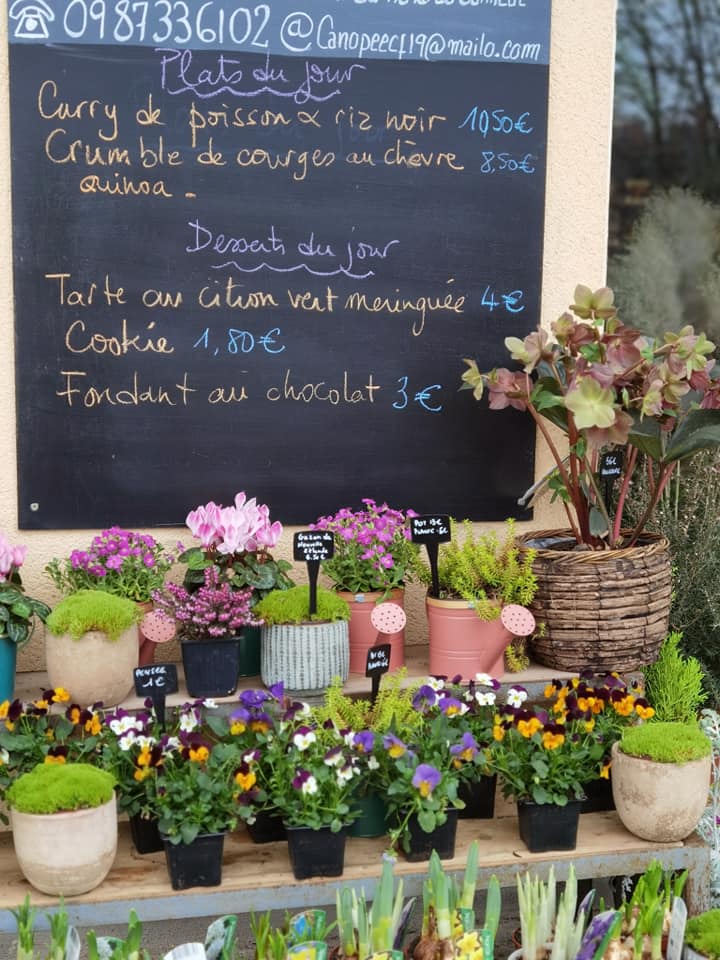 0987336102 @Canopeecf19@mailo.com
Plats du jour
Curry de poisson & riz noir 10,50€
Crumble de courges au chèvre 8,50€
quinoa.
Desserts du jour
Tarte au citron vert meringuée 4€
Cookie 1,80€
Fondant au chocolat 3€
36€
Gazon de
Nouvelle
Zélande
6.5€
POT 13€
PLANTE
PENSEE
1€